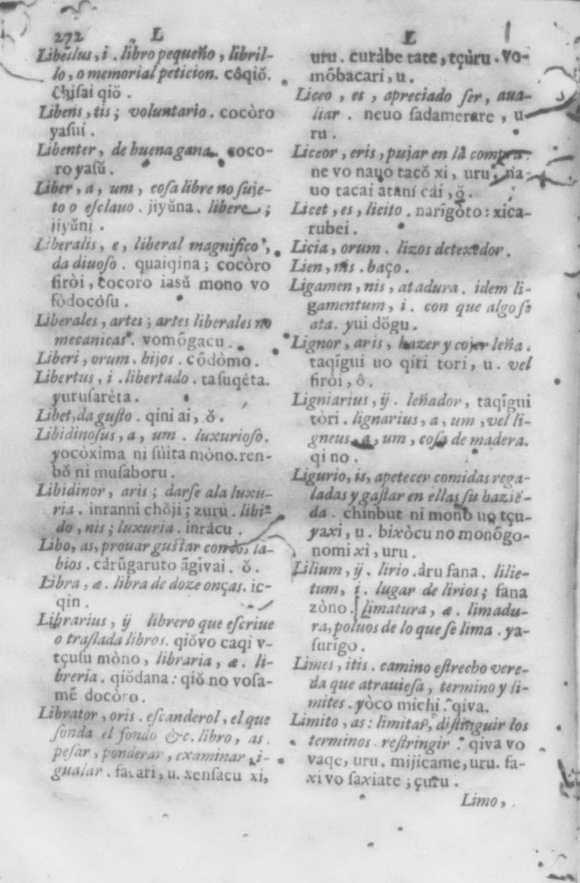 272 L
L
Libellus, i . libro pequeño, libril-
lo, o memorial peticion. cŏqiŏ.
Chisai qiŏ .
Libens, tis; voluntario. cocòro
yasui .
Libenter, de buena gana. coco-
ro yasŭ.
Liber, a, um, cosa libre no suje-
to o esclavo . jiyŭna. libere;
jiyŭni .
Liberalis, e, liberal magnifico,
da diuoso . quaiqina; cocòro
firòi, cocoro iasŭ mono vo
fòdocòsu .
Liberales, artes; artes liberales no
mecanicas. vomŏgacu .
Liberi, orum. hijos. cŏdòmo.
Libertus, i . libertado. tasuqèta.
yurusarèta.
Libet, da gusto . qini ai, ŏ.
Libidinosus, a, um . luxurioso.
yocòxima ni sùita mòno. ren-
bŏ ni musaboru .
Libidinor, aris; darse a la luxu-
ria. inranni chŏji; zuru. libi-
do, nis; luxuria . inràcu .
Libo, as, prouar gustar con los la-
bios. cárŭgaruto ăgivai. ŏ.
Libra, æ. libra de doze onças. ic-
qin .
Librarius, ÿ librero que escriue
o traslada libros. qiŏvo caqi v-
tçusu mòno, libraria, æ. li-
breria. qiŏdana: qiŏ no vosa-
mĕ docòro.
Librator, oris. escanderol, el que
sonda el fondo &c. libro, as.
pesar, ponderar, examinar, i-
gualar . facari, u. xensacu xi,
uru. curàbe tate, tçùru. vo-
mŏbacari, u.
Liceo, es, apreciado ser, aua-
liar . neuo sadamerare, u-
ru .
Liceor, eris, pujar en la compra.
ne vo nauo tacŏ xi, uru; na-
uo tacai atani cài, ŏ.
Licet, es, licito. narigòto: xica-
rubei.
Licia, orum. lizos de texedor.
Lien, nis. baço.
Ligamen, nis, atadura. idem li-
gamentum, i. con que algo se
ata. yui dŏgu .
Lignor, aris, hazer y cojer leña.
taqìgui uo qiri tori, u. vel
firòi, ô.
Ligniarius, ÿ. leñador, taqìgui
tòri. lignarius, a, um, vel li-
gneus, a, um, cosa de madera.
qi no .
Ligurio, is, apetecer comidas rega-
ladas y gastar en ellas su haziē-
da. chinbut ni monŏ uo tçu-
yaxi, u. bixòcu no monŏgo-
nomi xi, uru.
Lilium, ÿ. lirio. àru fana. lilie-
tum, i. lugar de lirios; fana
zòno. limatura, æ. limadu-
ra, poluos de lo que se lima. ya-
surigo.
Limes, itis. camino estrecho vere-
da que atrauiesa, termino y li-
mites. yòco michi. qiva.
Limito, as: limitar, distinguir los
terminos restringir. qiva vo
vaqe, uru. mijicame, uru. sa-
xi vo saxiate; çuru.
Limo,